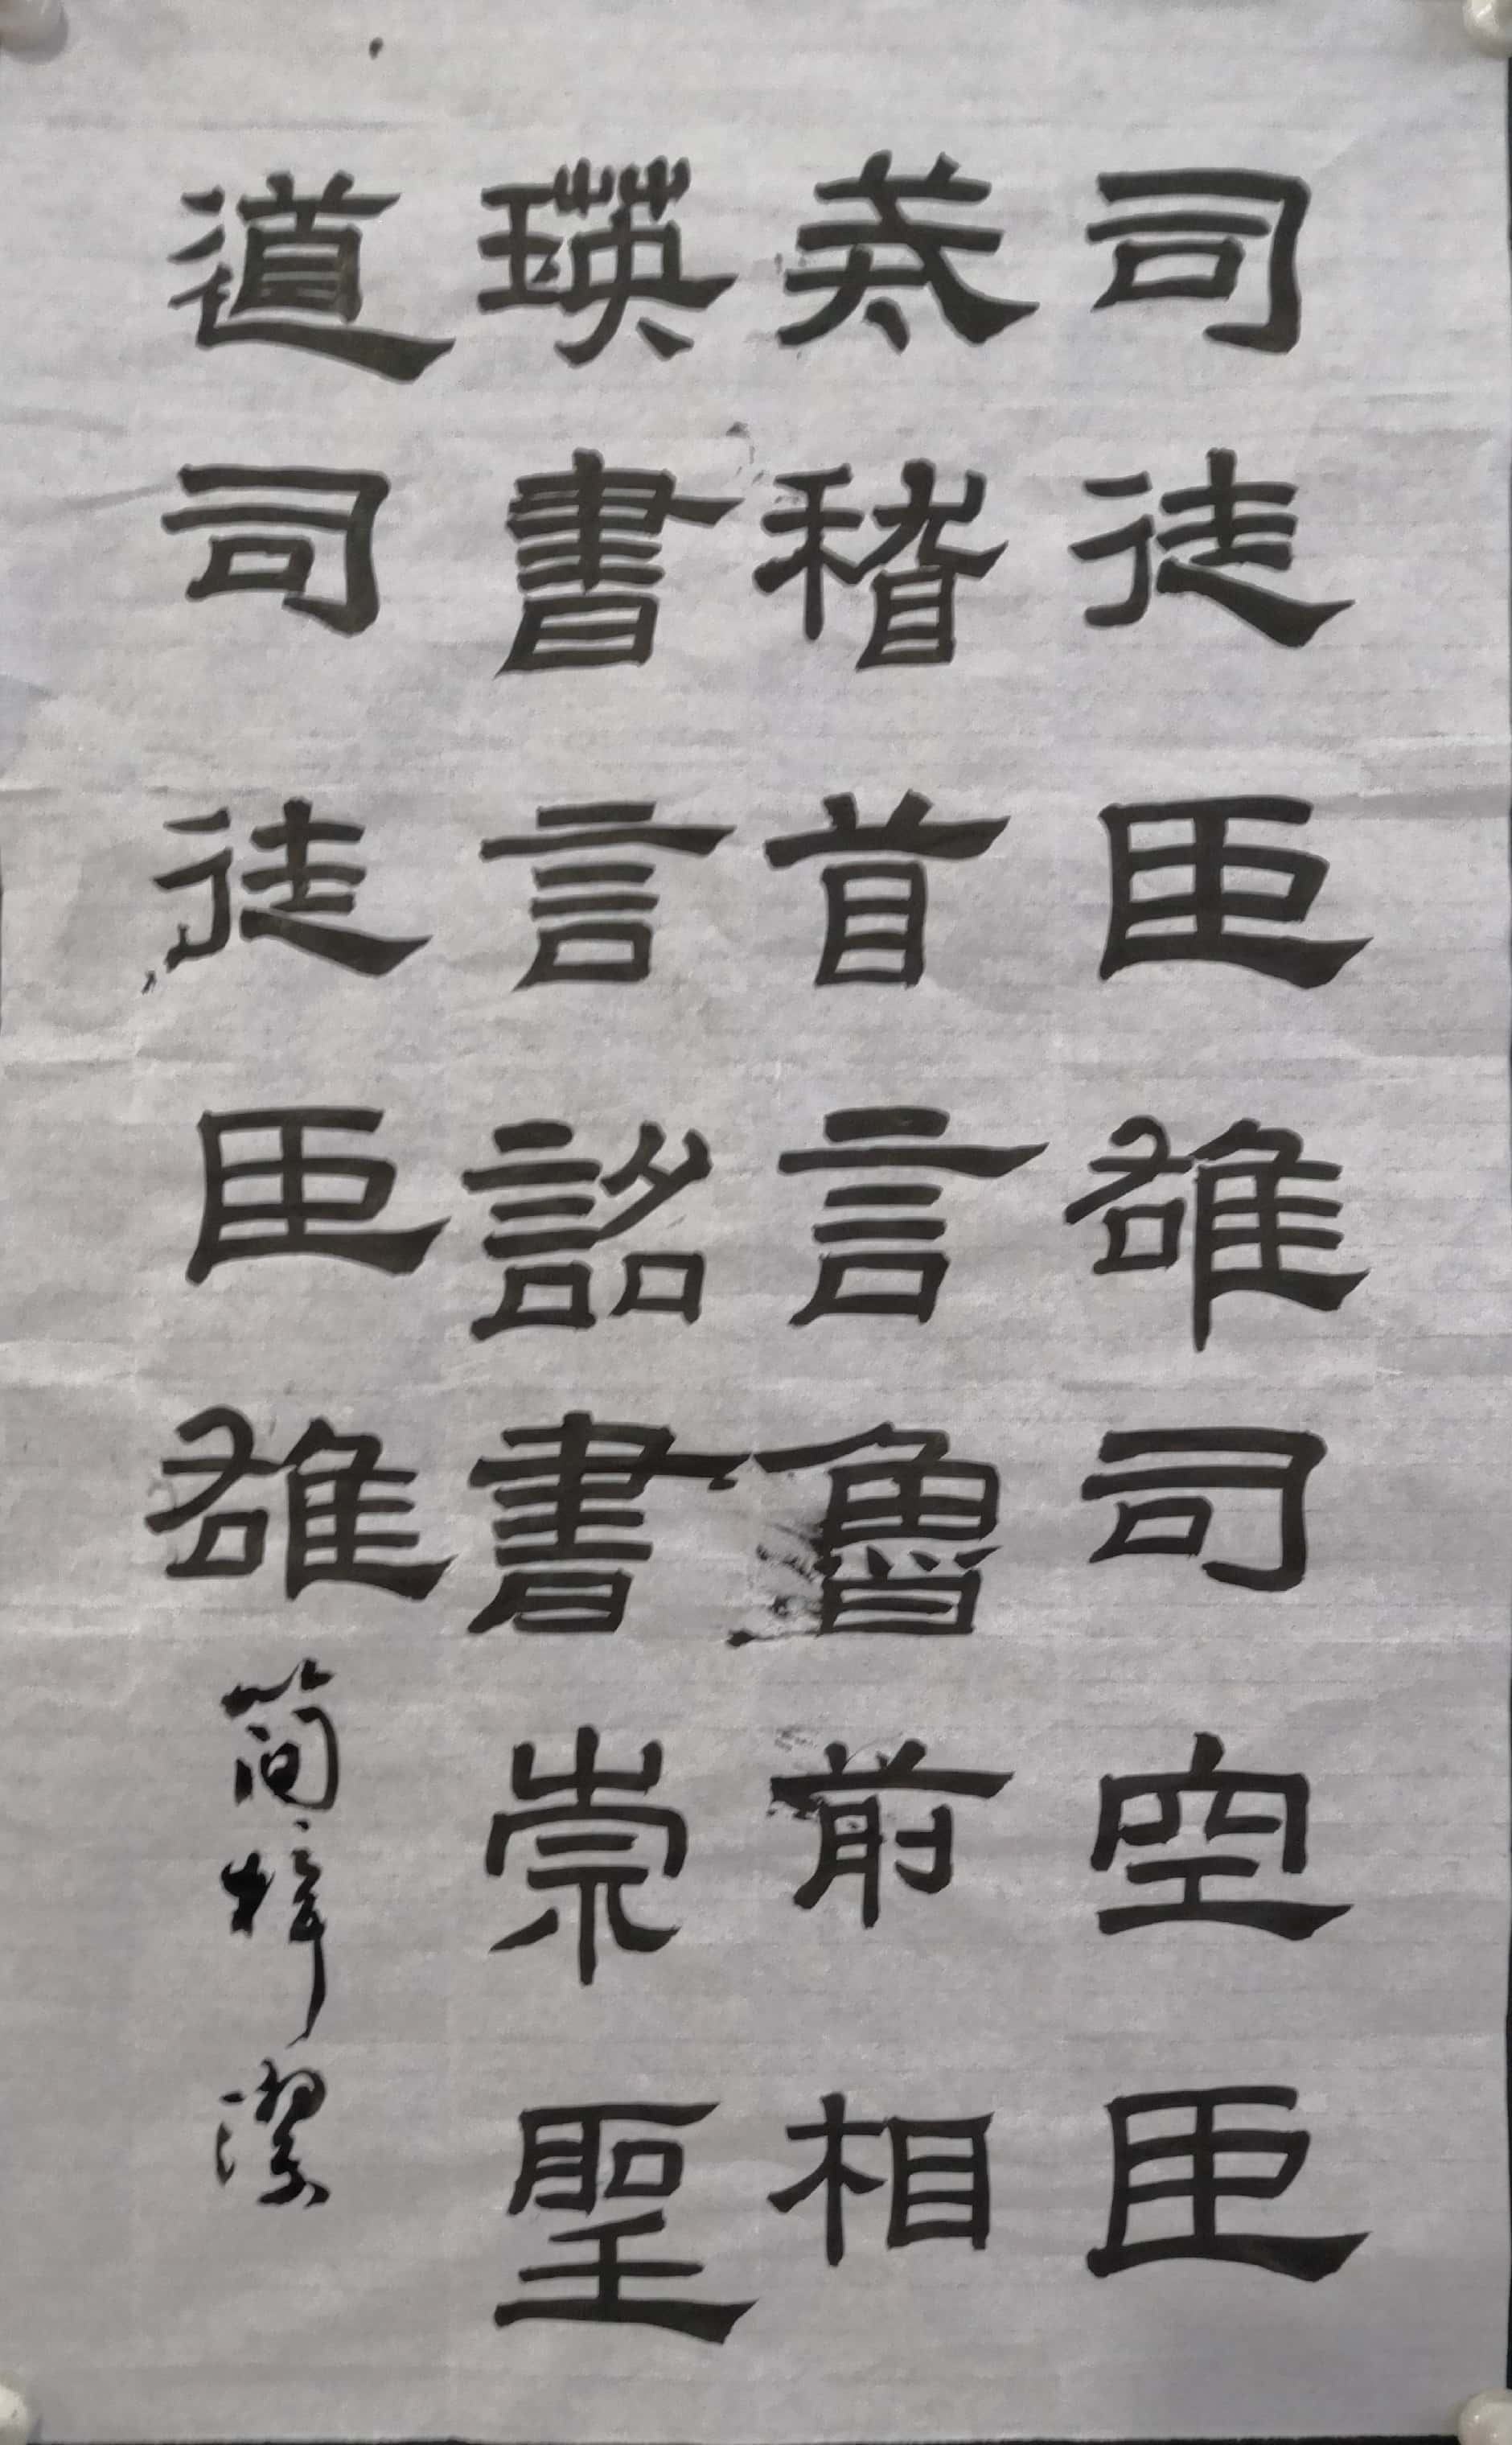 司徒臣雄司空臣
戒稽首言魯前相
瑛書言詔書崇聖
道司徒臣雄
简梓潔